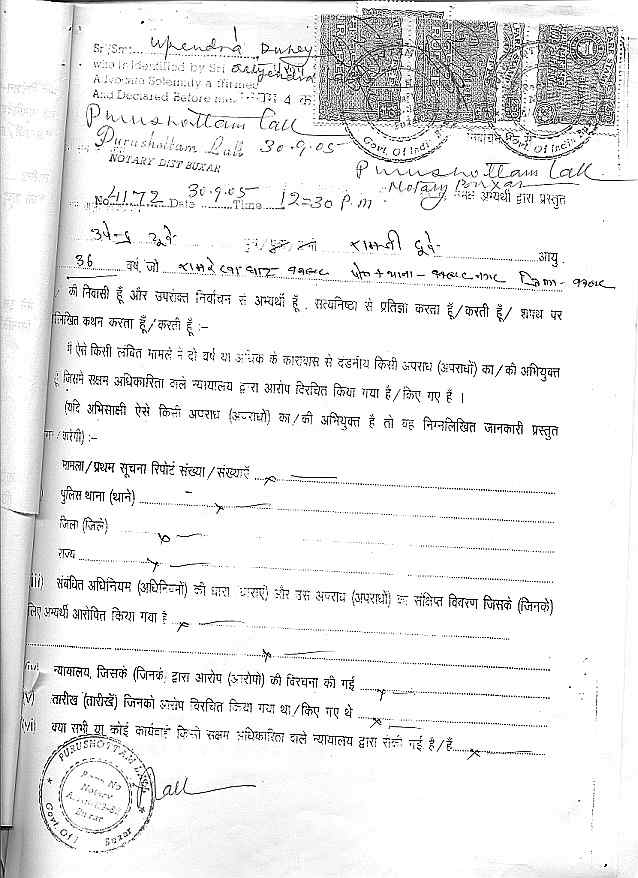 Sri/Smt. Upendra Dubey
who is Identified by Sri
Advocate Solemnly affirmed
And Declared Before me
Purushottam Lall
Purushottam Lall 30.9.05
NOTARY DIST BUXAR
Govt. Of India
Govt. Of India
Purushottam Lall
Notary Buxar
No. 4172 Date 30.9.05 Time 12=30 P.m.
अभ्यर्थी द्वारा प्रस्तुत
उपेन्द्र दूबे रामजी दूबे आयु
36 वर्ष, जो
की निवासी हूँ और उपरोक्त निर्वाचन से अभ्यर्थी हूँ, सत्यनिष्ठा से प्रतिज्ञा करता हूँ/करती हूँ/ शपथ पर
लिखित कथन करता हूँ/करती हूँ :-
मैं ऐसे किसी लंबित मामले में दो वर्ष या अधिक के कारावास से दंडनीय किसी अपराध (अपराधों) का/की अभियुक्त
हूँ जिसमें सक्षम अधिकारिता वाले न्यायालय द्वारा आरोप विरचित किया गया है/किए गए हैं ।
(यदि अभिसाक्षी ऐसे किसी अपराध (अपराधों) का/की अभियुक्त है तो वह निम्नलिखित जानकारी प्रस्तुत
/करेगी) :-
मामला/प्रथम सूचना रिपोर्ट संख्या/संख्याएँ x
पुलिस थाना (थाने) x
जिला (जिले) x
राज्य x
iii) संबंधित अधिनियम (अधिनियमों) की धारा धाराएं) और उस अपराध (अपराधों) का संक्षिप्त विवरण जिसके (जिनके)
लिए अभ्यर्थी आरोपित किया गया है x
x
(iv) न्यायालय, जिसके (जिनके) द्वारा आरोप (आरोपों) की विरचना की गई x
(v) तारीख (तारीखें) जिनको आरोप विरचित किया गया था/किए गए थे x
(vi) क्या सभी या कोई कार्यवाही किसी सक्षम अधिकारिता वाले न्यायालय द्वारा रोकी गई है/हैं x
PURUSHOTTAM LALL
Notary
Buxar
Govt. Of
Buxar
Lall